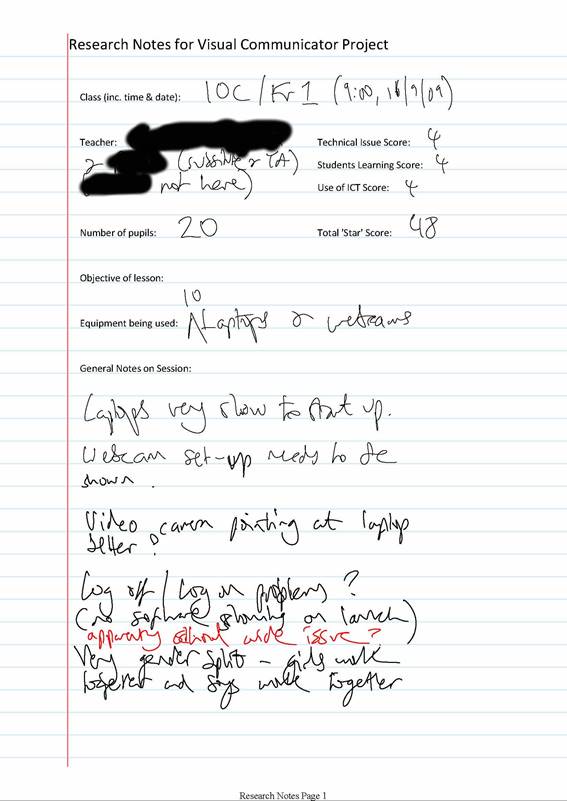 Research Notes for Visual Communicator Project
Class (inc. time & date): 10C/Fr1 (9:00, 16/9/09)
Teacher:
Technical Issue Score: 4
2 (& TA)
Students Learning Score: 4
not here)
Use of ICT Score: 4
Number of pupils: 20
Total 'Star' Score: 48
Objective of lesson:
10
Equipment being used: Laptops & webcams
General Notes on Session:
Laptops very slow to start up.
Webcam set-up needs to be
shown.
Video camera pointing at laptop
better?
Log off / Log on problems?
(no software showing on launch)
apparently school wide issue?
Very gender split - girls work
together and boys work together
Research Notes Page 1